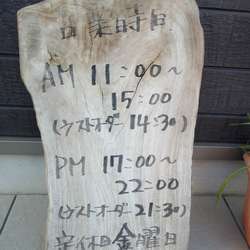 営業時間
AM 11:00〜
15:00
(ラストオーダー 14:30)
PM 17:00〜
22:00
(ラストオーダー 21:30)
定休日 金曜日